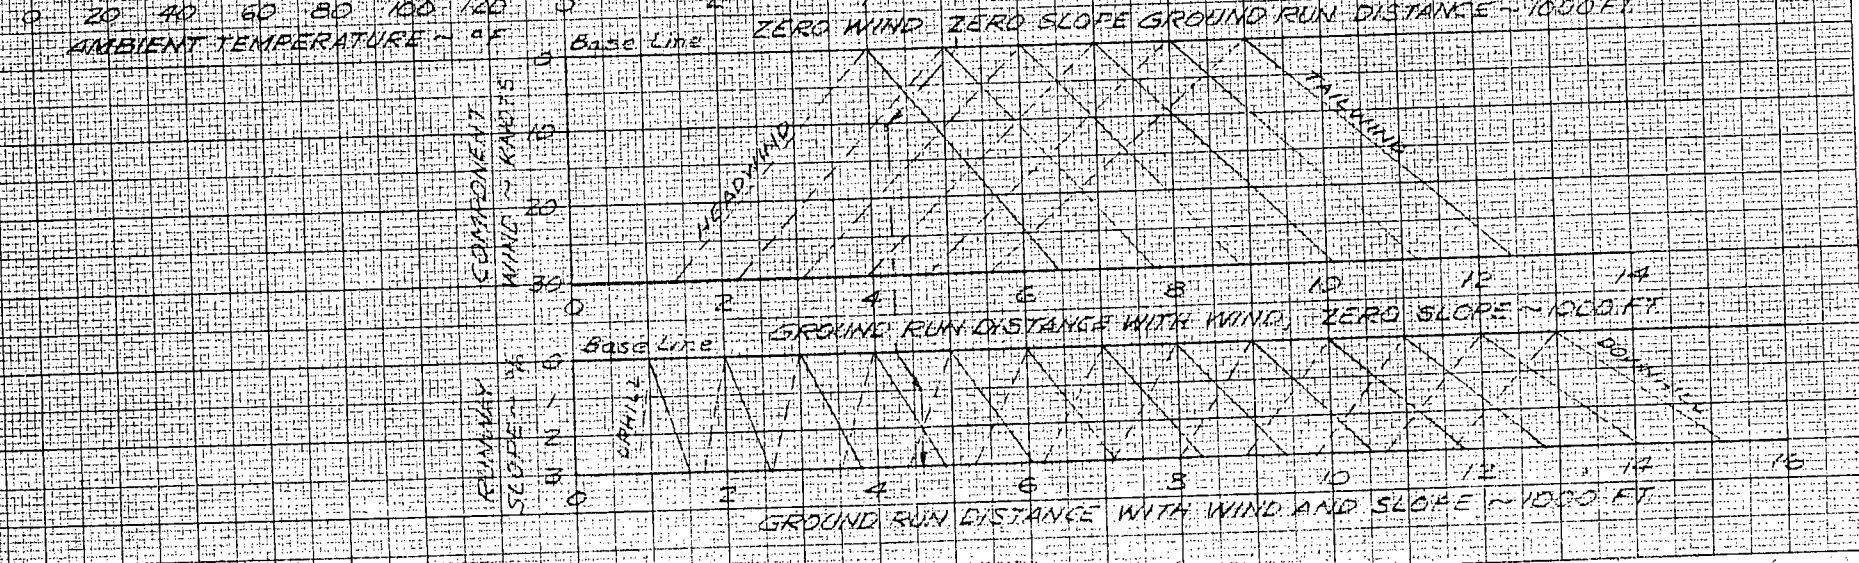 0 20 40 60 80 100 120
AMBIENT TEMPERATURE ~ °F
ZERO WIND ZERO SLOPE GROUND RUN DISTANCE ~ 1000 FT
Base Line
COMPONENT
WIND ~ KNOTS
0
10
20
30
HEADWIND
TAILWIND
0 2 4 6 8 10 12 14
GROUND RUN DISTANCE WITH WIND, ZERO SLOPE ~ 1000 FT
Base Line
RUNWAY
SLOPE ~ %
0
1
2
3
UPHILL
DOWNHILL
0 2 4 6 8 10 12 14 16
GROUND RUN DISTANCE WITH WIND AND SLOPE ~ 1000 FT